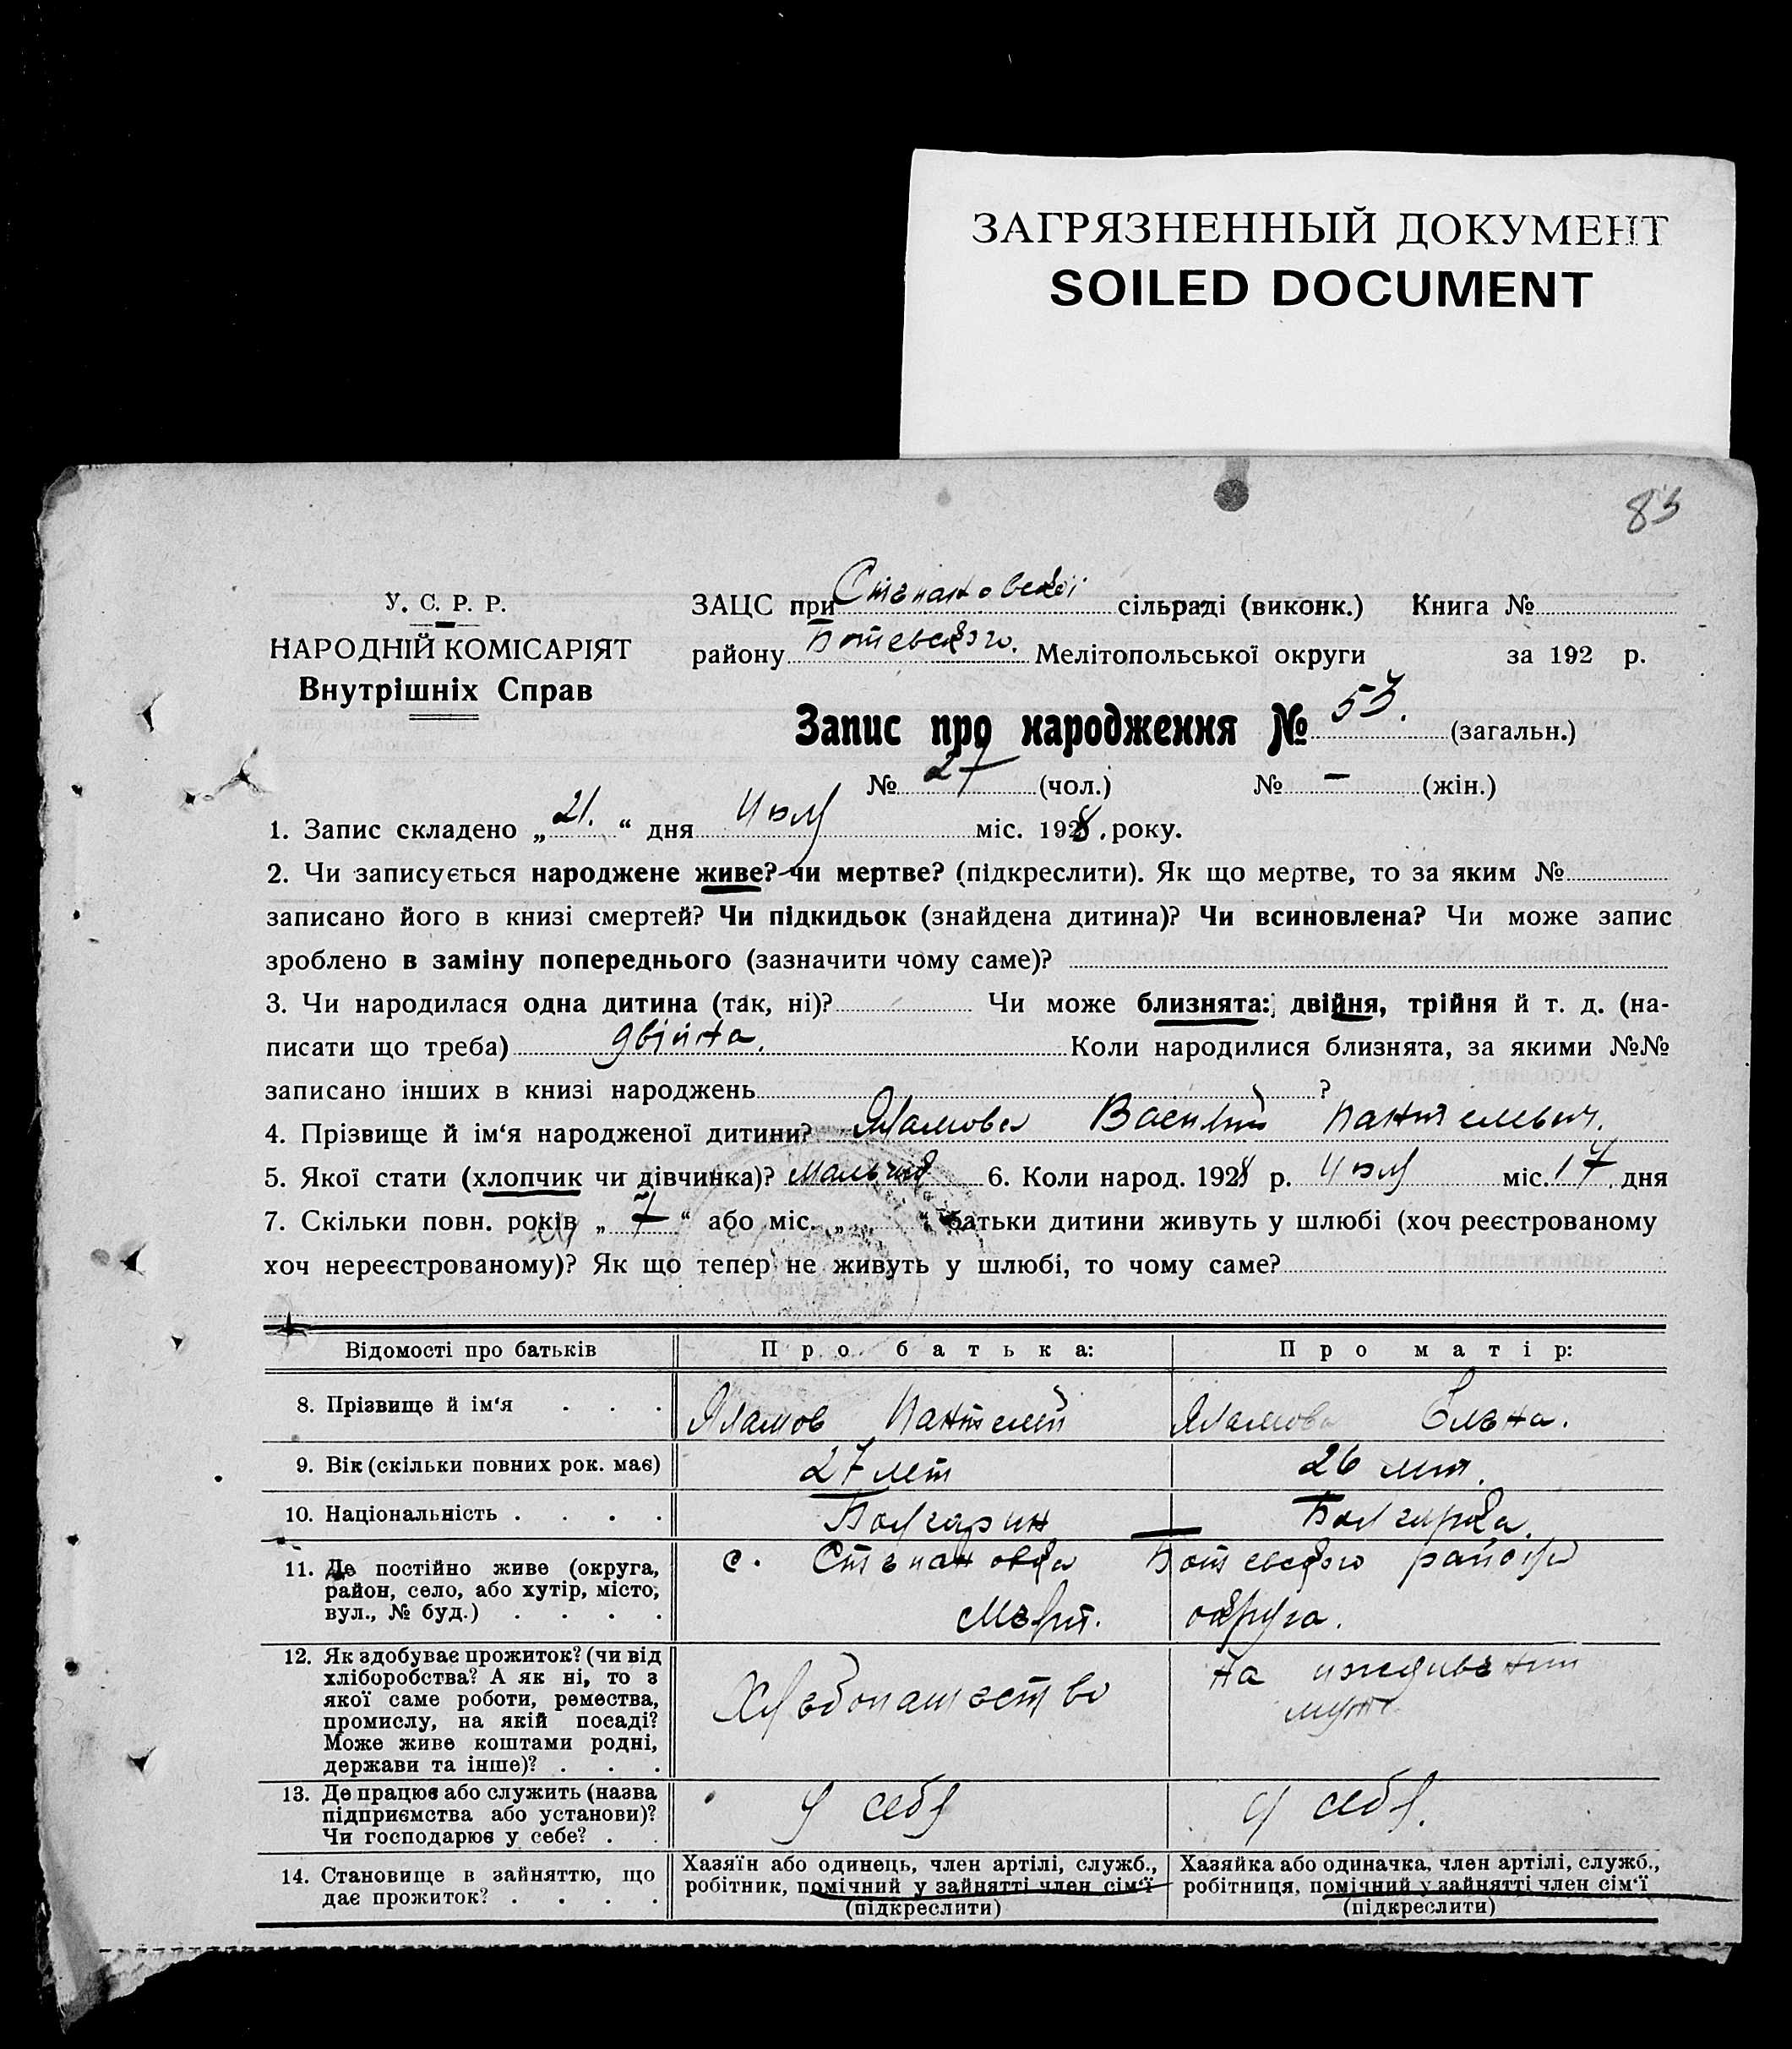 ЗАГРЯЗНЕННЫЙ ДОКУМЕНТ
SOILED DOCUMENT
83
У. С. Р. Р.
НАРОДНІЙ КОМІСАРІЯТ
Внутрішніх Справ
ЗАЦС при Степановской сільраді (виконк.) Книга №
району Ботевского. Мелітопольської округи за 192 р.
Запис про народження № 53. (загальн.)
№ 27 (чол.) № – (жін.)
1. Запис складено „ 21. “ дня Июля міс. 1928. року.
2. Чи записується народжене живе? чи мертве? (підкреслити). Як що мертве, то за яким №
записано його в книзі смертей? Чи підкидьок (знайдена дитина)? Чи всиновлена? Чи може запис
зроблено в заміну попереднього (зазначити чому саме)?
3. Чи народилася одна дитина (так, ні)? Чи може близнята: двійня, трійня й т. д. (на-
писати що треба) двійнта. Коли народилися близнята, за якими №№
записано інших в книзі народжень ?
4. Прізвище й ім‘я народженої дитини? Яламов Василий Пантелевич.
5. Якої стати (хлопчик чи дівчинка)? Мальчик 6. Коли народ. 1928 р. Июля міс. 17 дня
7. Скільки повн. років „ 7 “ або міс. „ “ батьки дитини живуть у шлюбі (хоч реєстрованому
хоч нереєстрованому)? Як що тепер не живуть у шлюбі, то чому саме?
Відомості про батьків Про батька: Про матір:
8. Прізвище й ім‘я . . . Яламов Пантелей Яламова Елена.
9. Вік (скільки повних рок. має) 27 лет 26 лет.
10. Національність . . . . Болгарин Болгарка.
11. Де постійно живе (округа, район, село, або хутір, місто, вул., № буд.) . . . . с. Степановка Ботевского района
Мелит. округа.
12. Як здобуває прожиток? (чи від хліборобства? А як ні, то з якої саме роботи, ремества, промислу, на якій посаді? Може живе коштами родні, держави та інше)? . . . Хлебопашество На иждивении
мужа
13. Де працює або служить (назва підприємства або установи)? Чи господарює у себе? . . У себя У себя.
14. Становище в зайняттю, що дає прожиток? . . . . Хазяїн або одинець, член артілі, служб., робітник, помічний у зайнятті член сім‘ї (підкреслити) Хазяйка або одиначка, член артілі, служб., робітниця, помічний у зайнятті член сім‘ї (підкреслити)